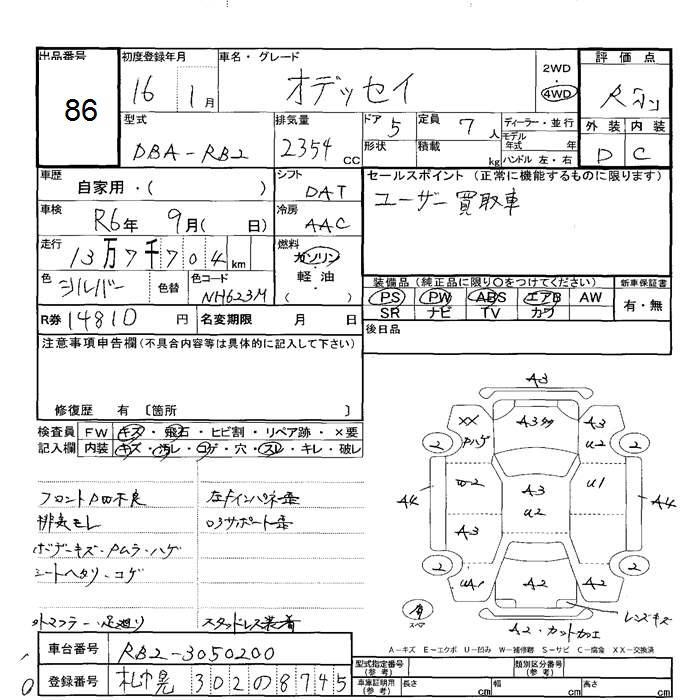 出品番号
86
初度登録年月
16 1月
車名・グレード
オデッセイ
2WD
・
4WD
評価点
外装 内装
D C
型式
DBA-RB2
排気量
2354 CC
ドア 5
形状
定員 7人
積載 kg
ディーラー・並行
モデル年式 年
ハンドル 左・右
車歴
自家用・( )
シフト
DAT
セールスポイント (正常に機能するものに限ります)
ユーザー買取車
車検
R6年 9月( 日)
冷房
AAC
走行
13万7千704km
燃料
ガソリン
・
軽油
( )
色
シルバー
色替
色コード
NH623M
装備品(純正品に限り○をつけてください)
PS PW ABS エアB AW
SR ナビ TV カワ
新車保証書
有・無
R券 14810円
名変期限 月 日
後日品
注意事項申告欄(不具合内容等は具体的に記入して下さい)
修復歴 有 〔箇所 〕
検査員記入欄
FW キズ・飛石・ヒビ割・リペア跡・×要
内装 キズ・汚レ・コゲ・穴・スレ・キレ・破レ
排気モレ
ボデーキズ・Pムラ・ハゲ
シートヘタリ・コゲ
左Fインパネ歪
ロアサポート歪
外マフラー・足廻り
スタッドレス装着
A3
XX
Pハゲ
A3
A3
U2
2
2
A4
W2
A3
U2
U1
A4
A3
2
2
UA1
A2
A2
レンズキズ
スペア
A2・カットカエ
A-キズ E-エクボ U-凹み W-補修跡 S-サビ C-腐食 XX-交換済
車台番号
RB2-3050200
登録番号
札幌 302の8745
型式指定番号
(参考)
類別区分番号
(参考)
車庫証明用
(参考)
長さ cm 幅 cm 高さ cm